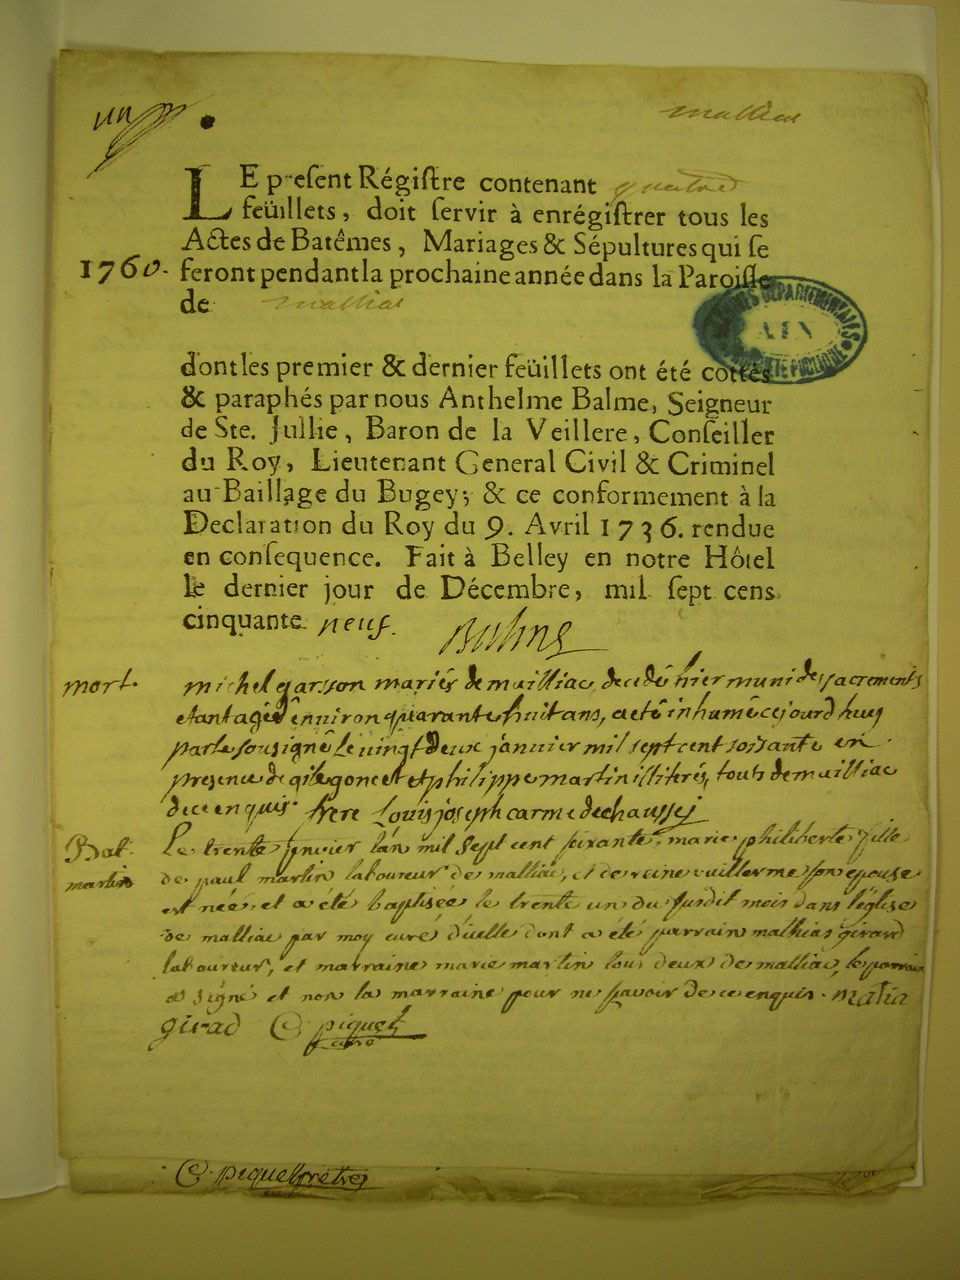 mallias
LE preſent Régiſtre contenant
feüillets, doit ſervir à enrégiſtrer tous les
Actes de Batêmes, Mariages & Sépultures qui ſe
1760. feront pendant la prochaine année dans la Paroiſſe
de mallias
ARCHIVES DÉPARTEMENTALES
AIN
PROPRIÉTÉ PUBLIQUE
dont les premier & dernier feüillets ont été cottés
& paraphés par nous Anthelme Balme, Seigneur
de Ste. Jullie, Baron de la Veillere, Conſeiller
du Roy, Lieutenant General Civil & Criminel
au Baillage du Bugey; & ce conformement à la
Declaration du Roy du 9. Avril 1736. rendue
en conſequence. Fait à Belley en notre Hôtel
le dernier jour de Décembre, mil ſept cens
cinquante neuf. Balme
mort. michel garsson mariés de mailliac decedé hier muni des sacrements
etant agé environ quarante huit ans, a eté inhumé ce jourd huy
par le sousigné le vingt deux janvier mil sept cent soissante en
presence de gile goncet et philippe martin illitérés, tous de mailliac
de ce enquis. frere Louis joseph carme dechaussej
Bat. Le trente janvier l'an mil sept cent soixante. marie philiberte fille
martin de paul martin laboureur de malliac, et de reine vuillerme son epouse
est née, et a eté baptisée le trente un du susdit mois dans l'église
de malliac par moy curé d'icelle dont a eté parrain mathias girard
laboureur, et marraine marie martin tous deux de malliac, le parrain
a signé et non la marraine pour ne sçavoir de ce enquis. matia
girad piquet
curé
piquet prêtre